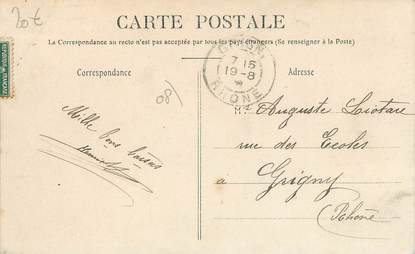 20€
CARTE POSTALE
La Correspondance au recto n'est pas acceptée par tous les pays étrangers (Se renseigner à la Poste)
Correspondance
Adresse
7 15
19-8
RHONE
08
Mille bons baisers
M. Auguste Liotare
rue des Ecoles
a Grigny
(Rhône)